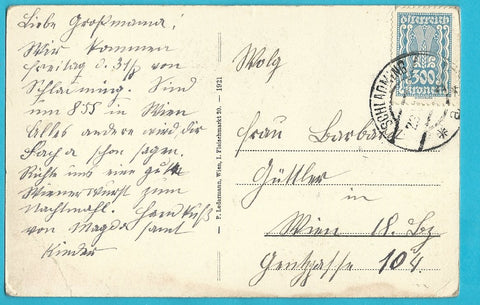 Liebe Großmama!
Wir kommen
Freitag d. 31/8 von
Schladming. Sind
um 855 in Wien
Alles andere wird dir
schon sagen.
Richte uns eine gute
Wienerwurst zum
Nachtmahl. Handkuß
von Magda samt
Kinder
P. Ledermann, Wien, I. Fleischmarkt 20. — 1921
Wolg
österreich
300
kronen
SCHLADMING
Frau Barbara
Güttler
in
Wien 18. Bz
Gentzgasse 104.